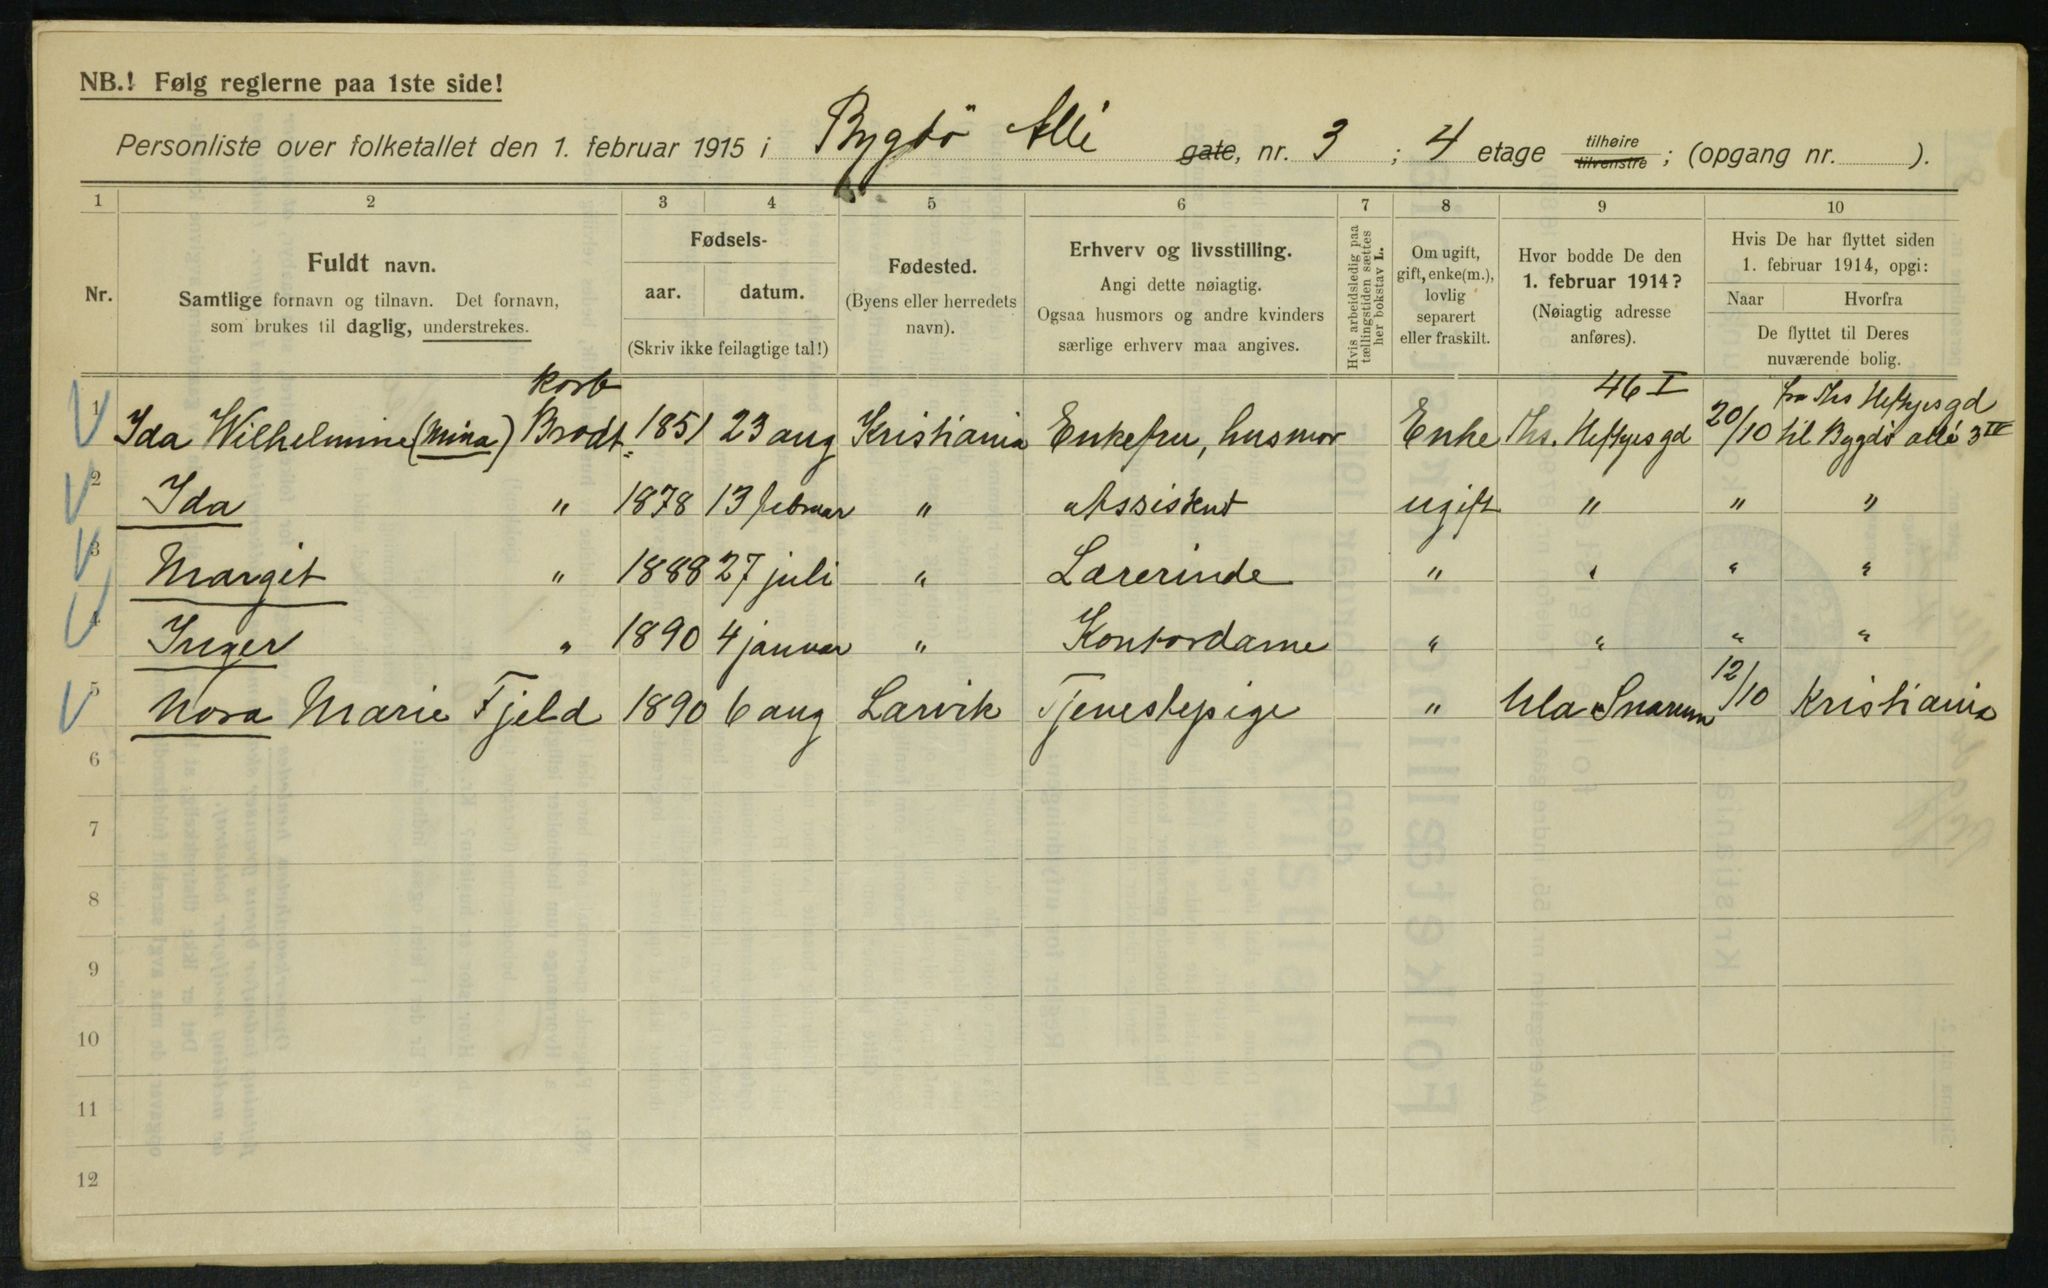 NB.! Følg reglerne paa 1ste side!
Personliste over folketallet den 1. februar 1915 i Bygdö Allé gate, nr. 3 ; 4 etage tilhøire tilvenstre ; (opgang nr. ).
1 2 3 4 5 6 7 8 9 10
Nr.
Fuldt navn.
Samtlige fornavn og tilnavn. Det fornavn,
som brukes til daglig, understrekes.
Fødsels-
aar. datum.
(Skriv ikke feilagtige tal!)
Fødested.
(Byens eller herredets
navn).
Erhverv og livsstilling.
Angi dette nøiagtig.
Ogsaa husmors og andre kvinders
særlige erhverv maa angives.
Hvis arbeidsledig paa
tællingstiden sættes
her bokstav L.
Om ugift,
gift, enke(m.),
lovlig
separert
eller fraskilt.
Hvor bodde De den
1. februar 1914?
(Nøiagtig adresse
anføres).
Hvis De har flyttet siden
1. februar 1914, opgi:
Naar Hvorfra
De flyttet til Deres
nuværende bolig.
Korb 46 I fra Ths Heftyesgd
1 Ida Wilhelmine (Mina) Brodt 1851 23 aug Kristiania Enkefru, husmor Enke Ths. Heftyesgd 20/10 til Bygdö allé 3 IV
2 Ida " 1878 13 februar " Assistent ugift " " "
3 Margit " 1888 27 juli " Lærerinde " " " "
4 Inger " 1890 4 januar " Kontordame " " " "
5 Nora Marie Fjeld 1890 6 aug Larvik Tjenestepige " Snarum 12/10 Kristiania
6
7
8
9
10
11
12